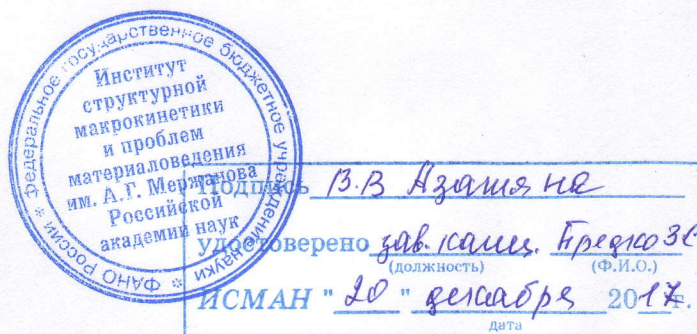 * Федеральное государственное бюджетное учреждение науки * ФАНО России
Институт
структурной
макрокинетики
и проблем
материаловедения
им. А.Г. Мержанова
Российской
академии наук
Подпись В.В Азатяна
удостоверено зав. канц. Бредко ЗС
(должность) (Ф.И.О.)
ИСМАН "20" декабря 2017г.
дата